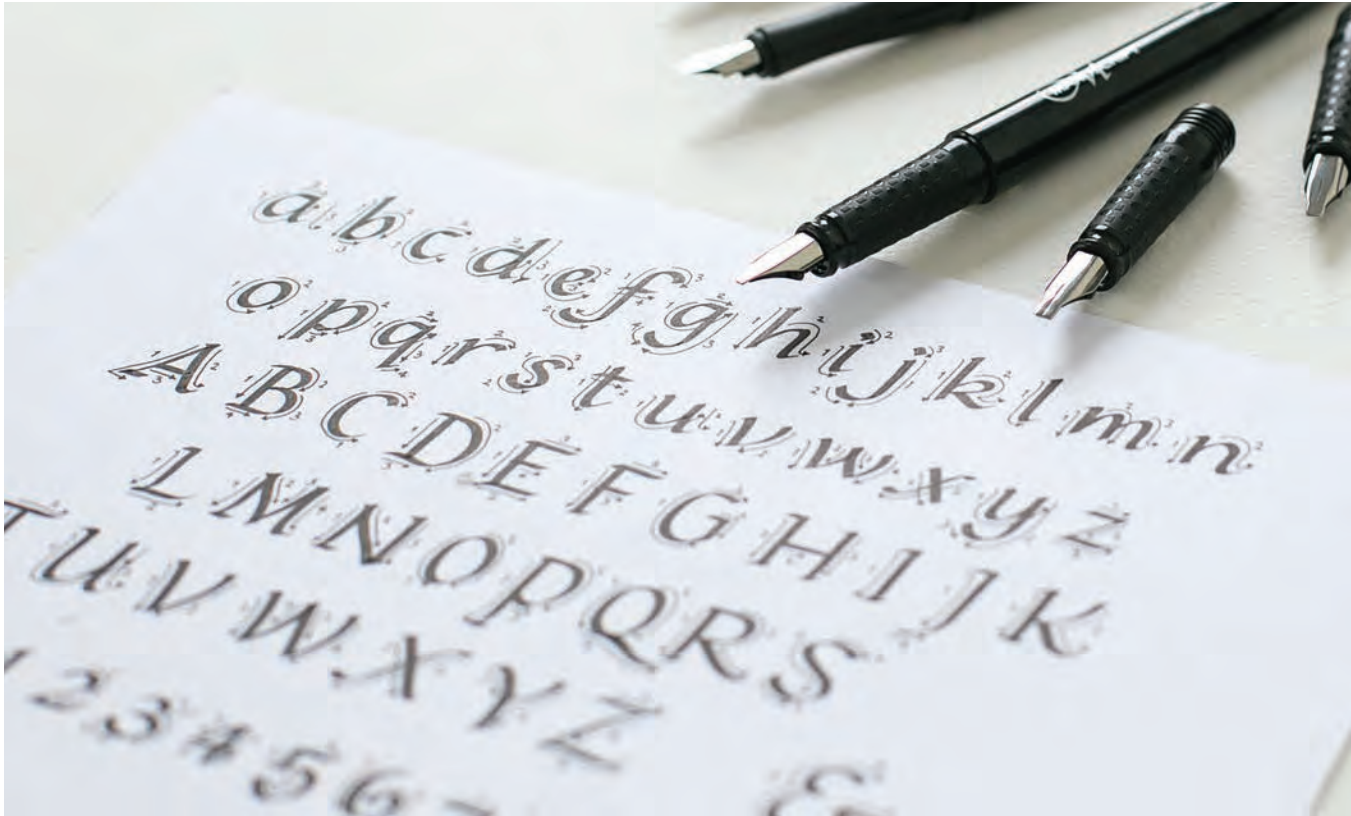 a b c d e f g h i j k l m n
o p q r s t u v w x y z
A B C D E F G H I J K
L M N O P Q R S
T U V W X Y Z
1 2 3 4 5 6
&